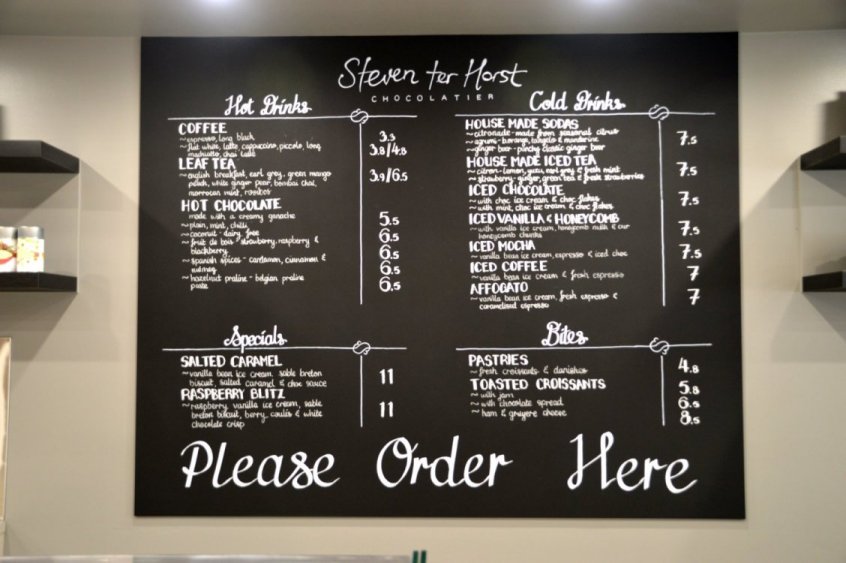 Steven ter Horst
CHOCOLATIER
Hot Drinks
COFFEE
~espresso, long black 3.5
~flat white, latte, cappuccino, piccolo, long 3.8/4.8
macchiato, chai latte
LEAF TEA
~english breakfast, earl grey, green mango 3.9/6.5
peach, white ginger pear, bombay chai,
moroccan mint, rooibos
HOT CHOCOLATE
made with a creamy ganache
~plain, mint, chilli 5.5
~coconut - dairy free 6.5
~fruit de bois - strawberry, raspberry & 6.5
blackberry
~spanish spices - cardamon, cinnamon & 6.5
nutmeg
~hazelnut praline - belgian praline 6.5
paste
Cold Drinks
HOUSE MADE SODAS
~citronade - made from seasonal citrus 7.5
~agrumi - borange, tangelo & mandarine
~ginger beer - punchy classic ginger beer
HOUSE MADE ICED TEA
~citron - lemon, yuzu, earl grey & fresh mint 7.5
~strawberry - ginger, green tea & fresh strawberries
ICED CHOCOLATE
~with choc ice cream & choc flakes 7.5
~with mint, choc ice cream & choc flakes
ICED VANILLA & HONEYCOMB
~with vanilla ice cream, honeycomb milk & our 7.5
honeycomb chunks
ICED MOCHA
~vanilla bean ice cream, espresso & iced choc 7.5
ICED COFFEE
~vanilla bean ice cream & fresh espresso 7
AFFOGATO
~vanilla bean ice cream, fresh espresso & 7
caramelised espresso
Specials
SALTED CARAMEL
~vanilla bean ice cream, sable breton 11
biscuit, salted caramel & choc sauce
RASPBERRY BLITZ
~raspberry, vanilla ice cream, sable 11
breton biscuit, berry, coulis & white
chocolate crisp
Bites
PASTRIES
~fresh croissants & danishes 4.8
TOASTED CROISSANTS
~with jam 5.8
~with chocolate spread 6.5
~ham & gruyere cheese 8.5
Please Order Here